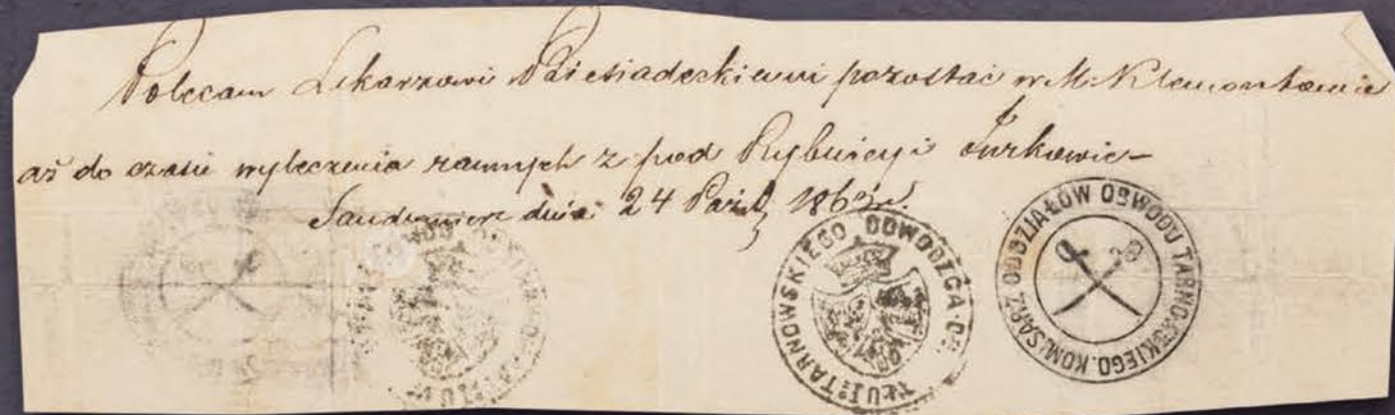 Polecam Lekarzowi Biesiadeckiemu pozostać w M. Klemontowie
aż do czasu wyleczenia rannych z pod Rybnicy i Jurkowic –
Sandomierz dnia 24 Paźd 1863 r.
TARNOWSKIEGO DOWÓDZCA
KOMISARZ ODDZIAŁÓW OBWODU TARNOWSKIEGO.